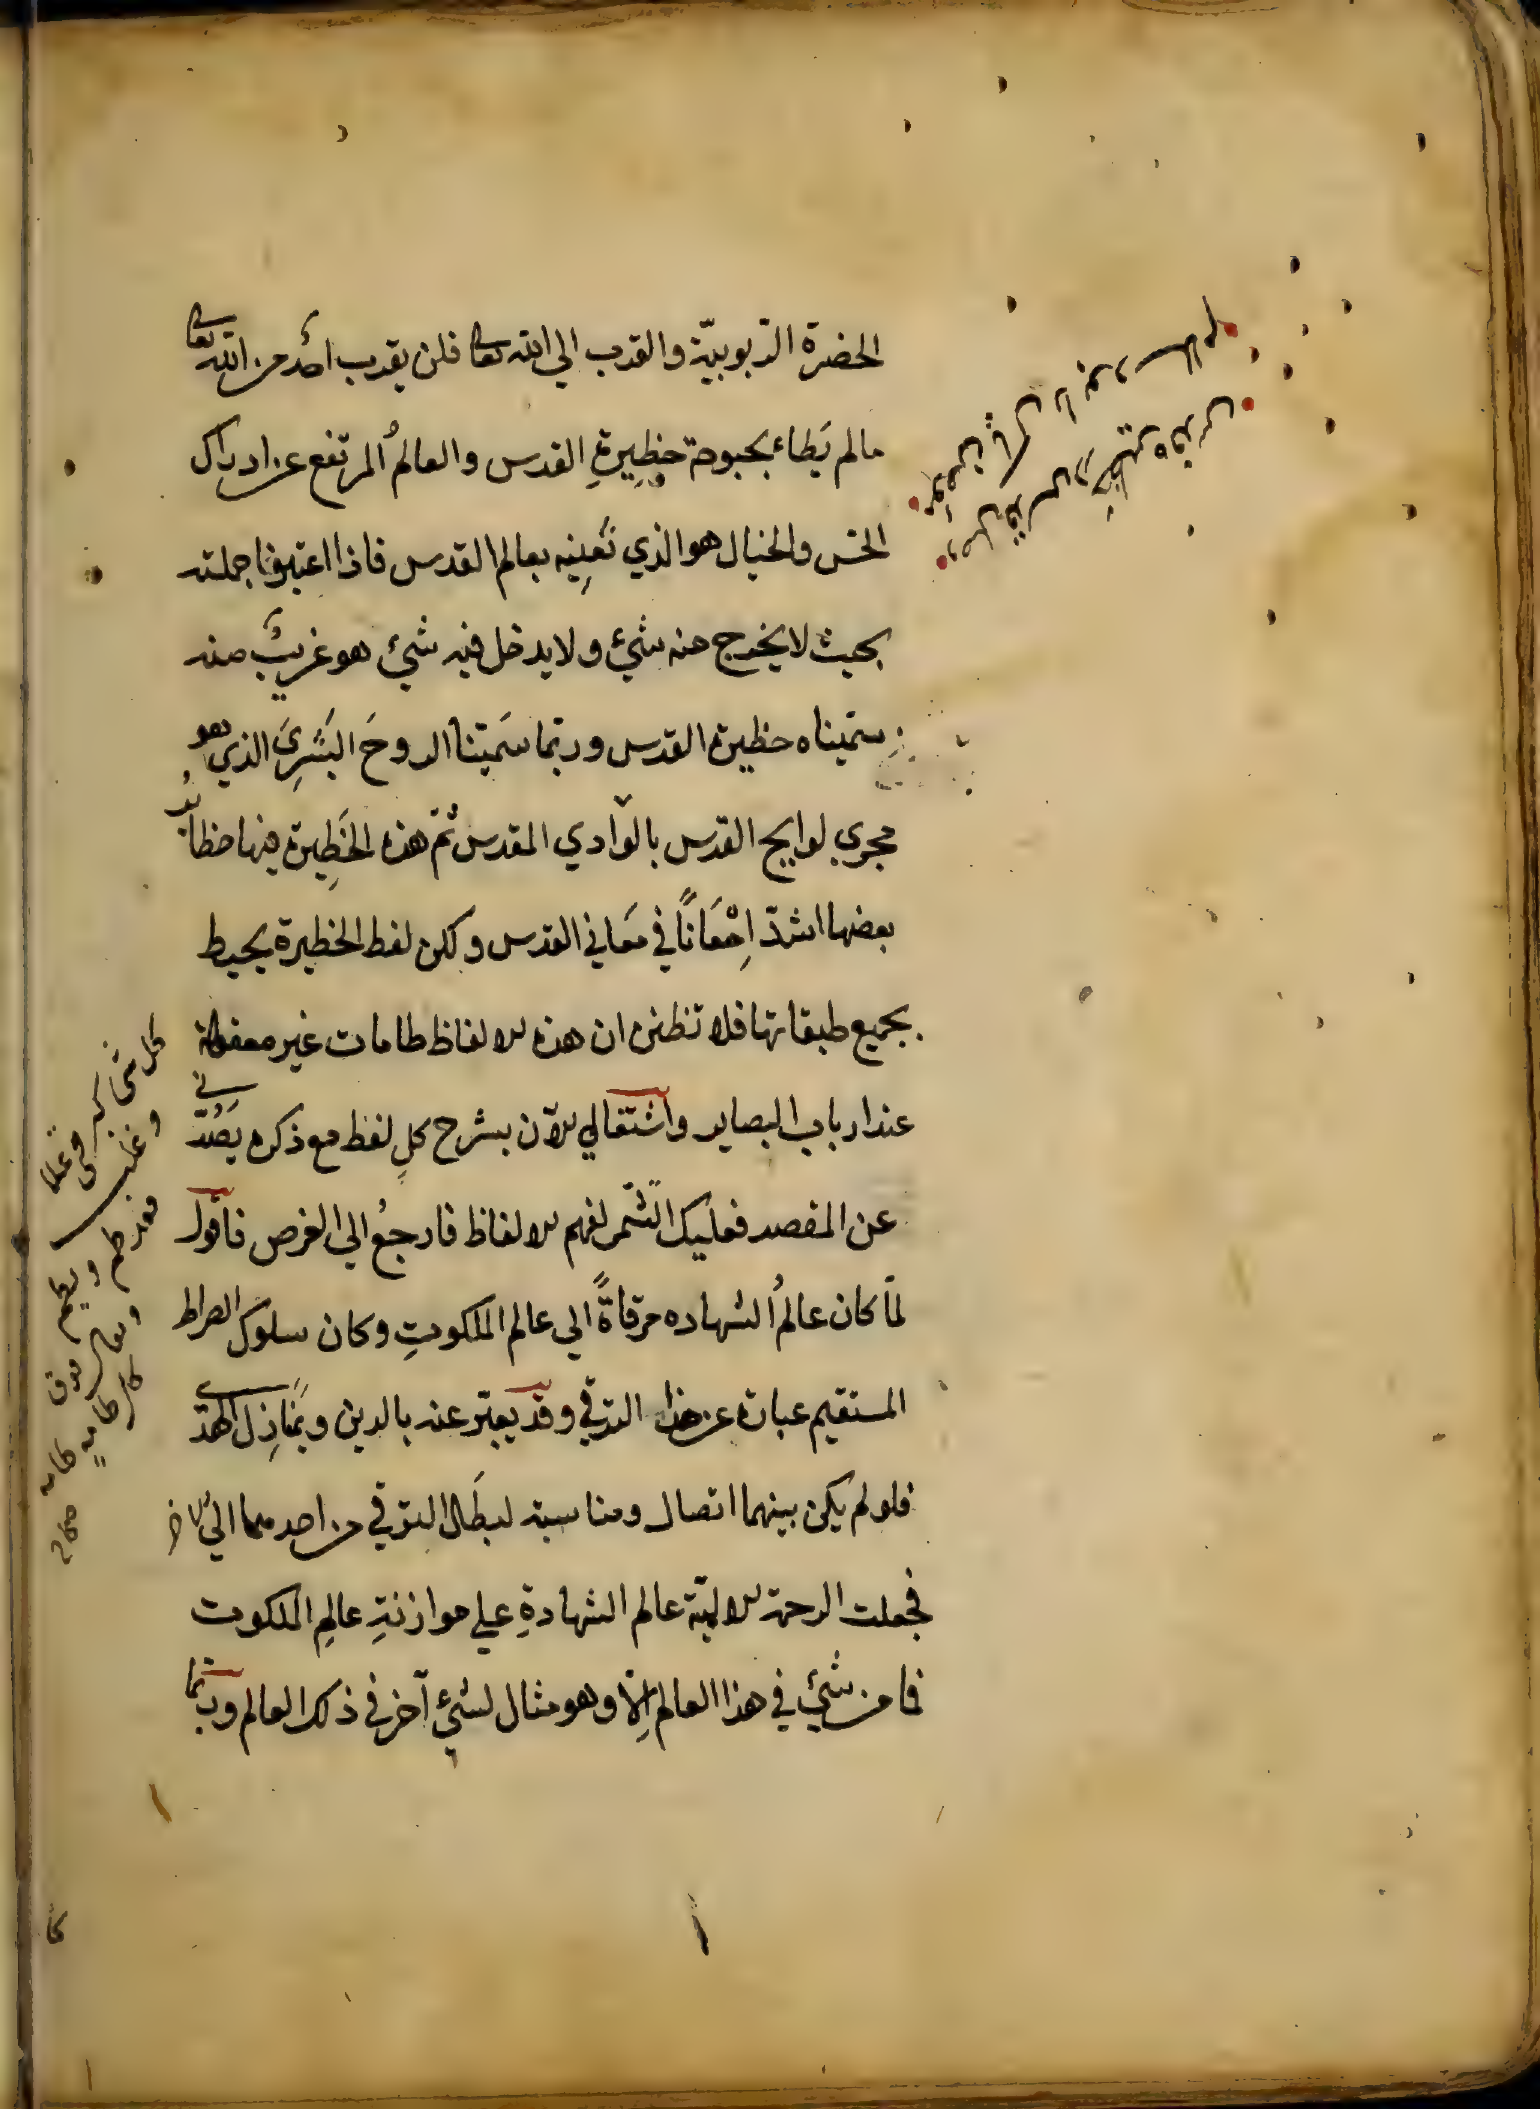 الحضرة الربوبيّة والقرب الي الله تعالى فلن يقرب احد من الله تعالى
مالم يَطاء بحبوحة حظِيرةِ القدس والعالمُ المرتفع عن ادراك
الحسّ والخيال هو الذي نَعنِيه بعالم القدس فاذا اعتبرنا جملته
بحيث لا يخرج منه شئ ولا يدخل فيه شئ هو غريبٌ منه
سمّيناه حظيرة القدس وربّما سَمّينا الروحَ البَشَرِيَ الذي هو
مجري لوايح القدس بالوادي المقدس ثمّ هذه الحَظِيرة فيها حظاير
بعضها اشدّ اِمْعَانًا في مَعَاني القدس ولكن لفظ الحظيرة يحيط
بجميع طبقاتها فلا تظنن ان هذه الالفاظ طامات غير معقولة
عند ارباب البصاير واشتغالي الآن بشرح كلِ لفظ مع ذكره يَصُدّني
عن المقصد فعليك التشمّر لفهم الالفاظ فارجعُ الي الغرض فاقول
لمّا كان عالمُ الشهاده مرقاةً الي عالم الملكوتِ وكان سلوك الصراط
المستقيم عبارة عن هذا الترقي وقد يعبّر عنه بالدين وبمَنَازِل الهدى
فلو لم يكن بينهما اتصال ومناسبة لبطَل الترقي من احدهما الي الاخر
فجعلت الرحمة الالهيّة عالم الشهادةِ علي موازنةِ عالمِ الملكوت
فما من شئ في هذا العالم اِلّا وهو مثال لشئ آخر في ذلك العالم وربّما
كل شئ كثر حتى علا
وغلب
فقد طم